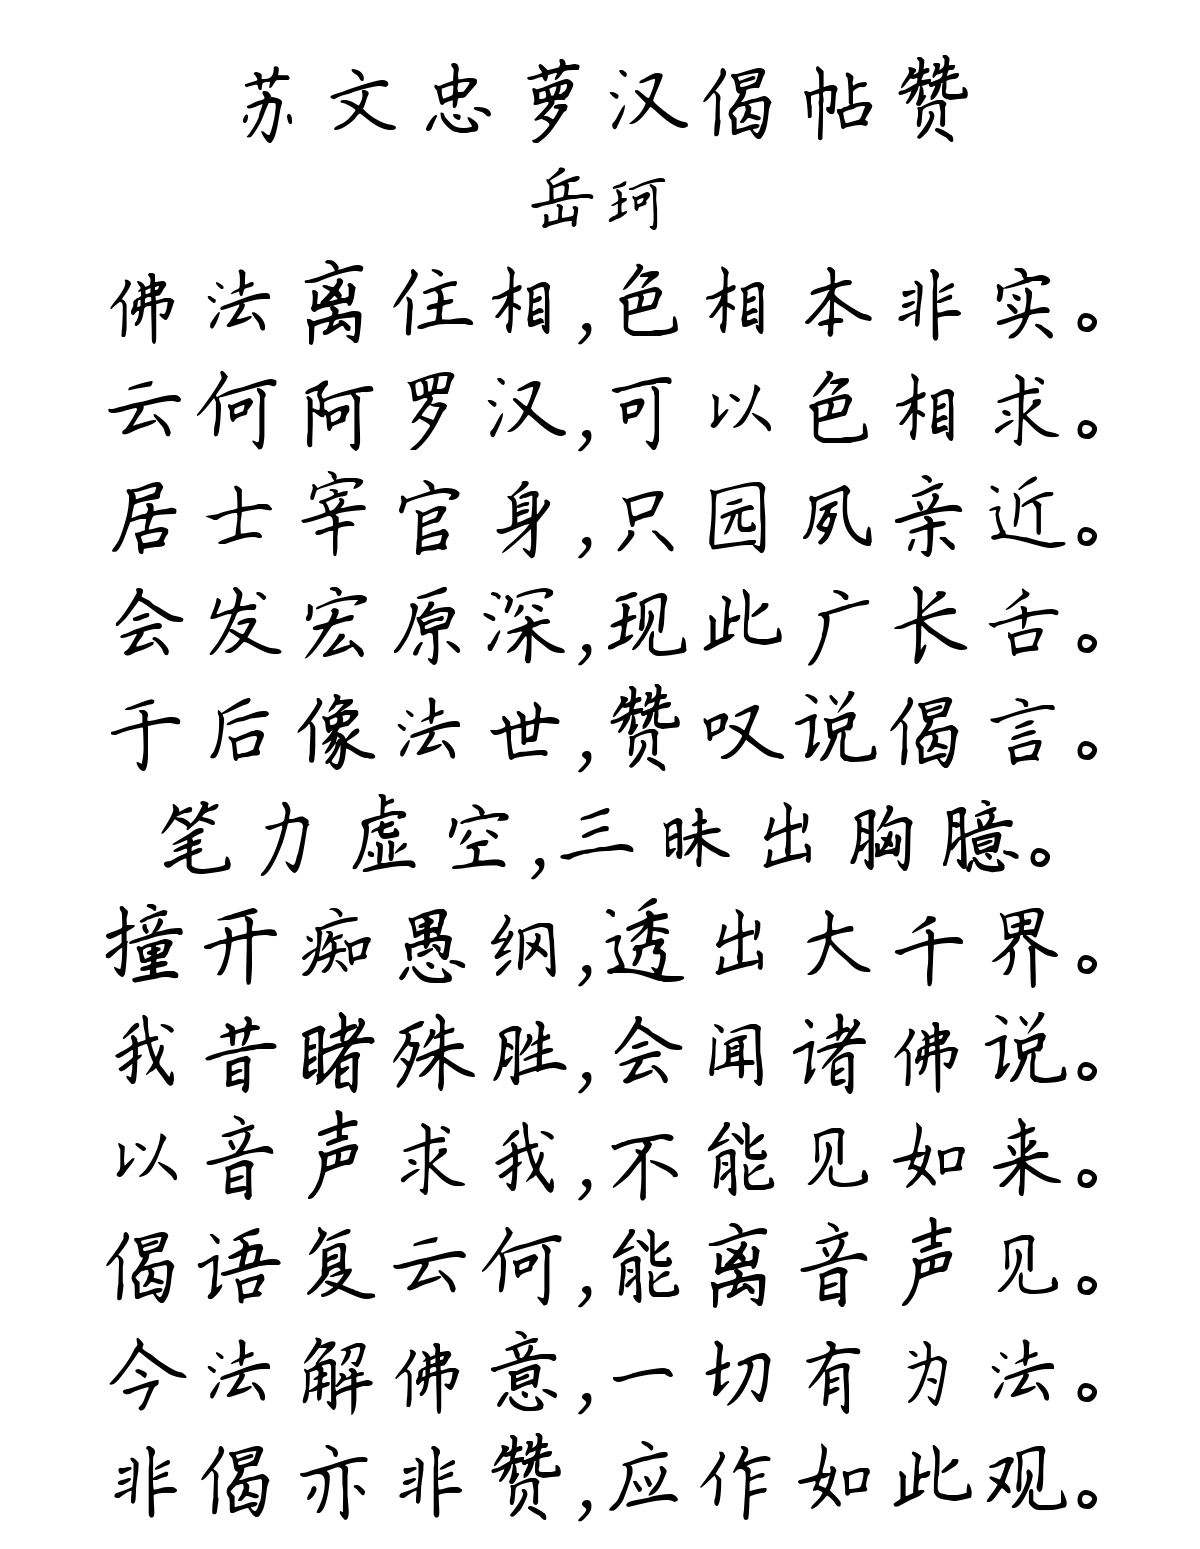 苏文忠萝汉偈帖赞
岳珂
佛法离住相,色相本非实。
云何阿罗汉,可以色相求。
居士宰官身,只园夙亲近。
会发宏原深,现此广长舌。
于后像法世,赞叹说偈言。
笔力虚空,三昧出胸臆。
撞开痴愚纲,透出大千界。
我昔睹殊胜,会闻诸佛说。
以音声求我,不能见如来。
偈语复云何,能离音声见。
今法解佛意,一切有为法。
非偈亦非赞,应作如此观。